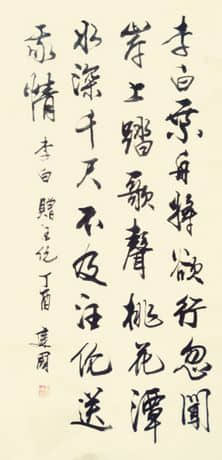 李白乘舟將欲行忽聞
岸上踏歌聲桃花潭
水深千尺不及汪伦送
我情 李白贈汪伦 丁酉 國